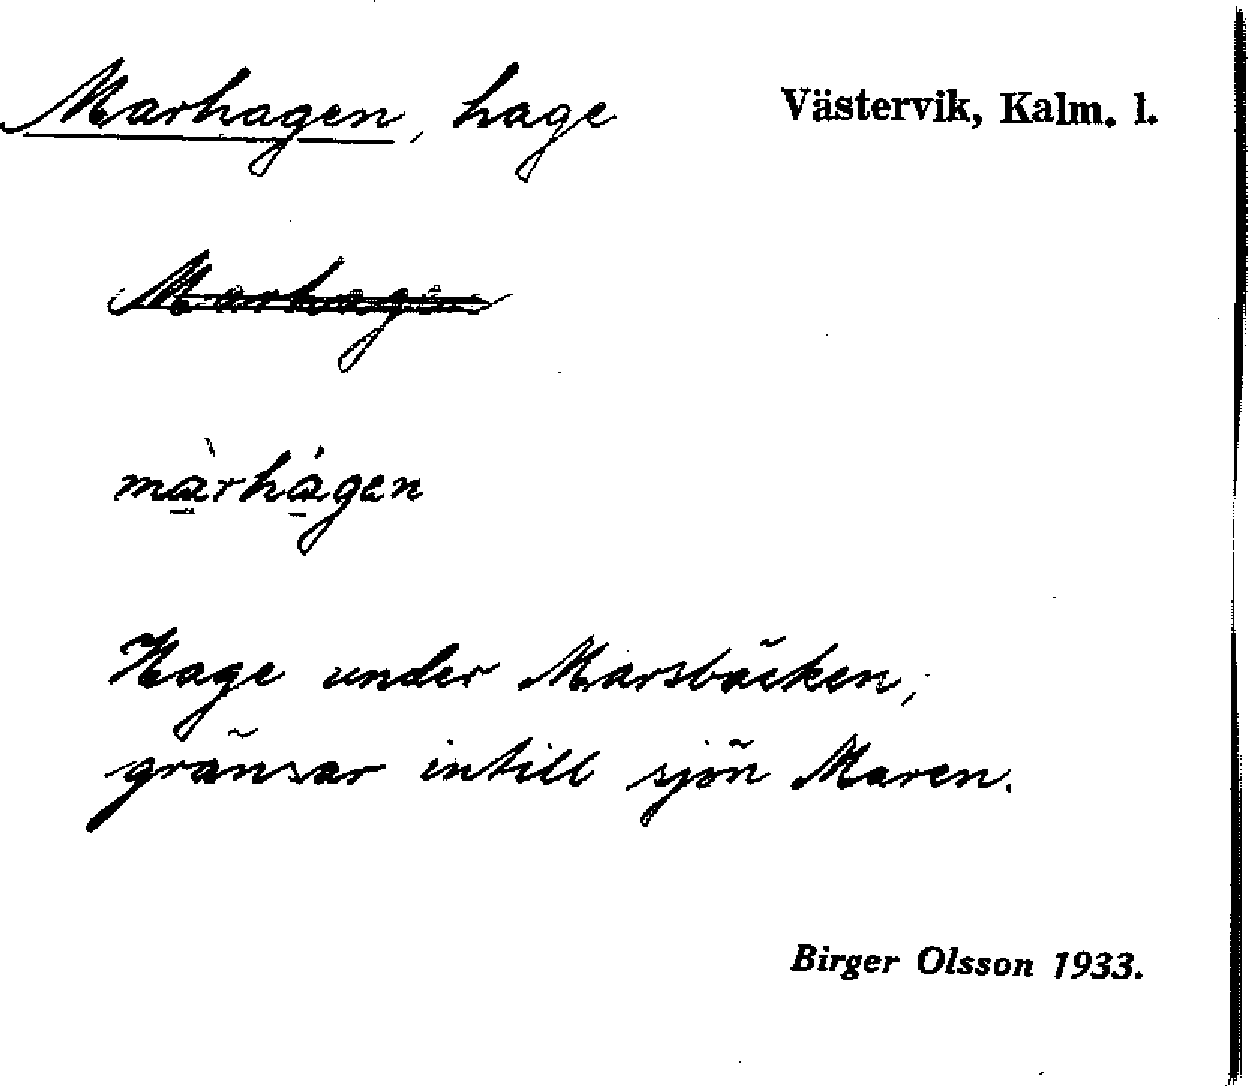 Marhagen, hage Västervik, Kalm. l.
Marhagen
mà̱rhá̱gen
Hage under Marsbäcken,
gränsar intill sjön Maren.
Birger Olsson 1933.